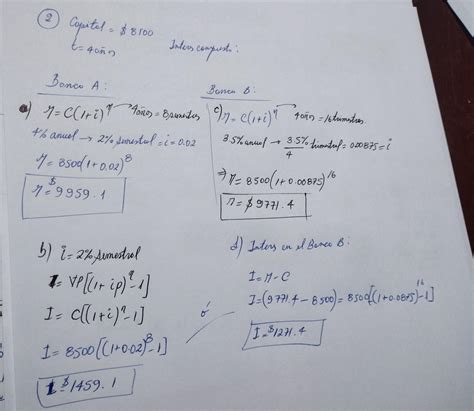 ② Capital = $ 8500
t = 4 años
Interes compuesto:
Banco A:
a) M = C(1+i)^n → 4 años = 8 semestres
4% anual → 2% semestral = i = 0.02
M = 8500(1+0.02)^8
M = $9959.1
b) i = 2% semestral
I = VP[(1+ip)^n -1]
I = C[(1+i)^n -1]
I = 8500[(1+0.02)^8 -1]
I = $1459.1
Banco B:
c) M = C(1+i)^n → 4 años = 16 trimestres.
3.5% anual → 3.5%/4 trimestral = 0.00875 = i
=) M = 8500(1+0.00875)^16
M = $9771.4
d) Interes en el Banco B:
I = M - C
ó I = (9771.4 - 8500) = 8500[(1+0.0875)^16 -1]
I = $1271.4